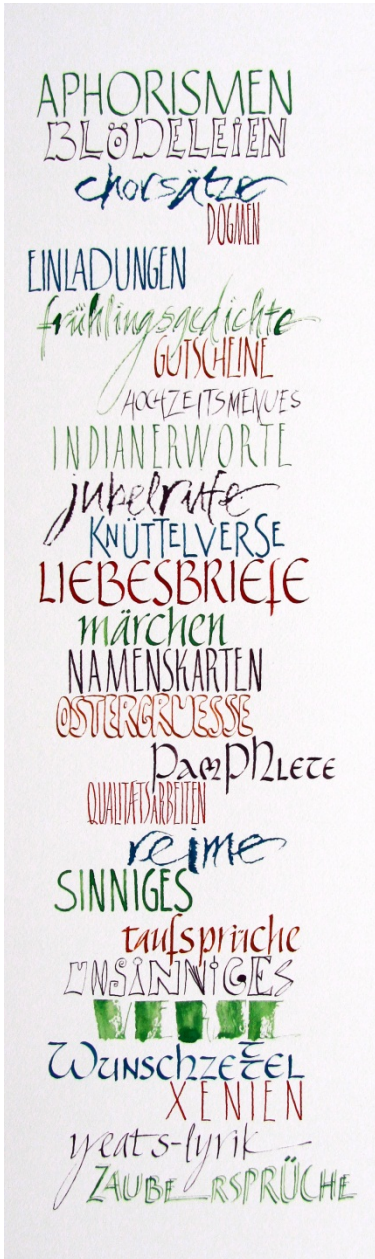 APHORISMEN
BLÖDELEIEN
chorsätze
DOGMEN
EINLADUNGEN
frühlingsgedichte
GUTSCHEINE
HOCHZEITSMENUES
INDIANERWORTE
jubelrufe
KNÜTTELVERSE
LIEBESBRIEfE
märchen
NAMENSKARTEN
OSTERGRUESSE
PAMPHLETE
QUALITÆTSARBEITEN
reime
SINNIGES
taufsprüche
UNSINNIGES
VERSE
WUNSCHZETTEL
XENIEN
yeats-lyrik
ZAUBERSPRÜCHE